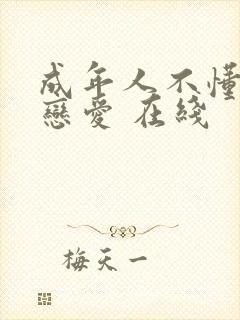 成年人不懂
戀愛 在綫
梅天一